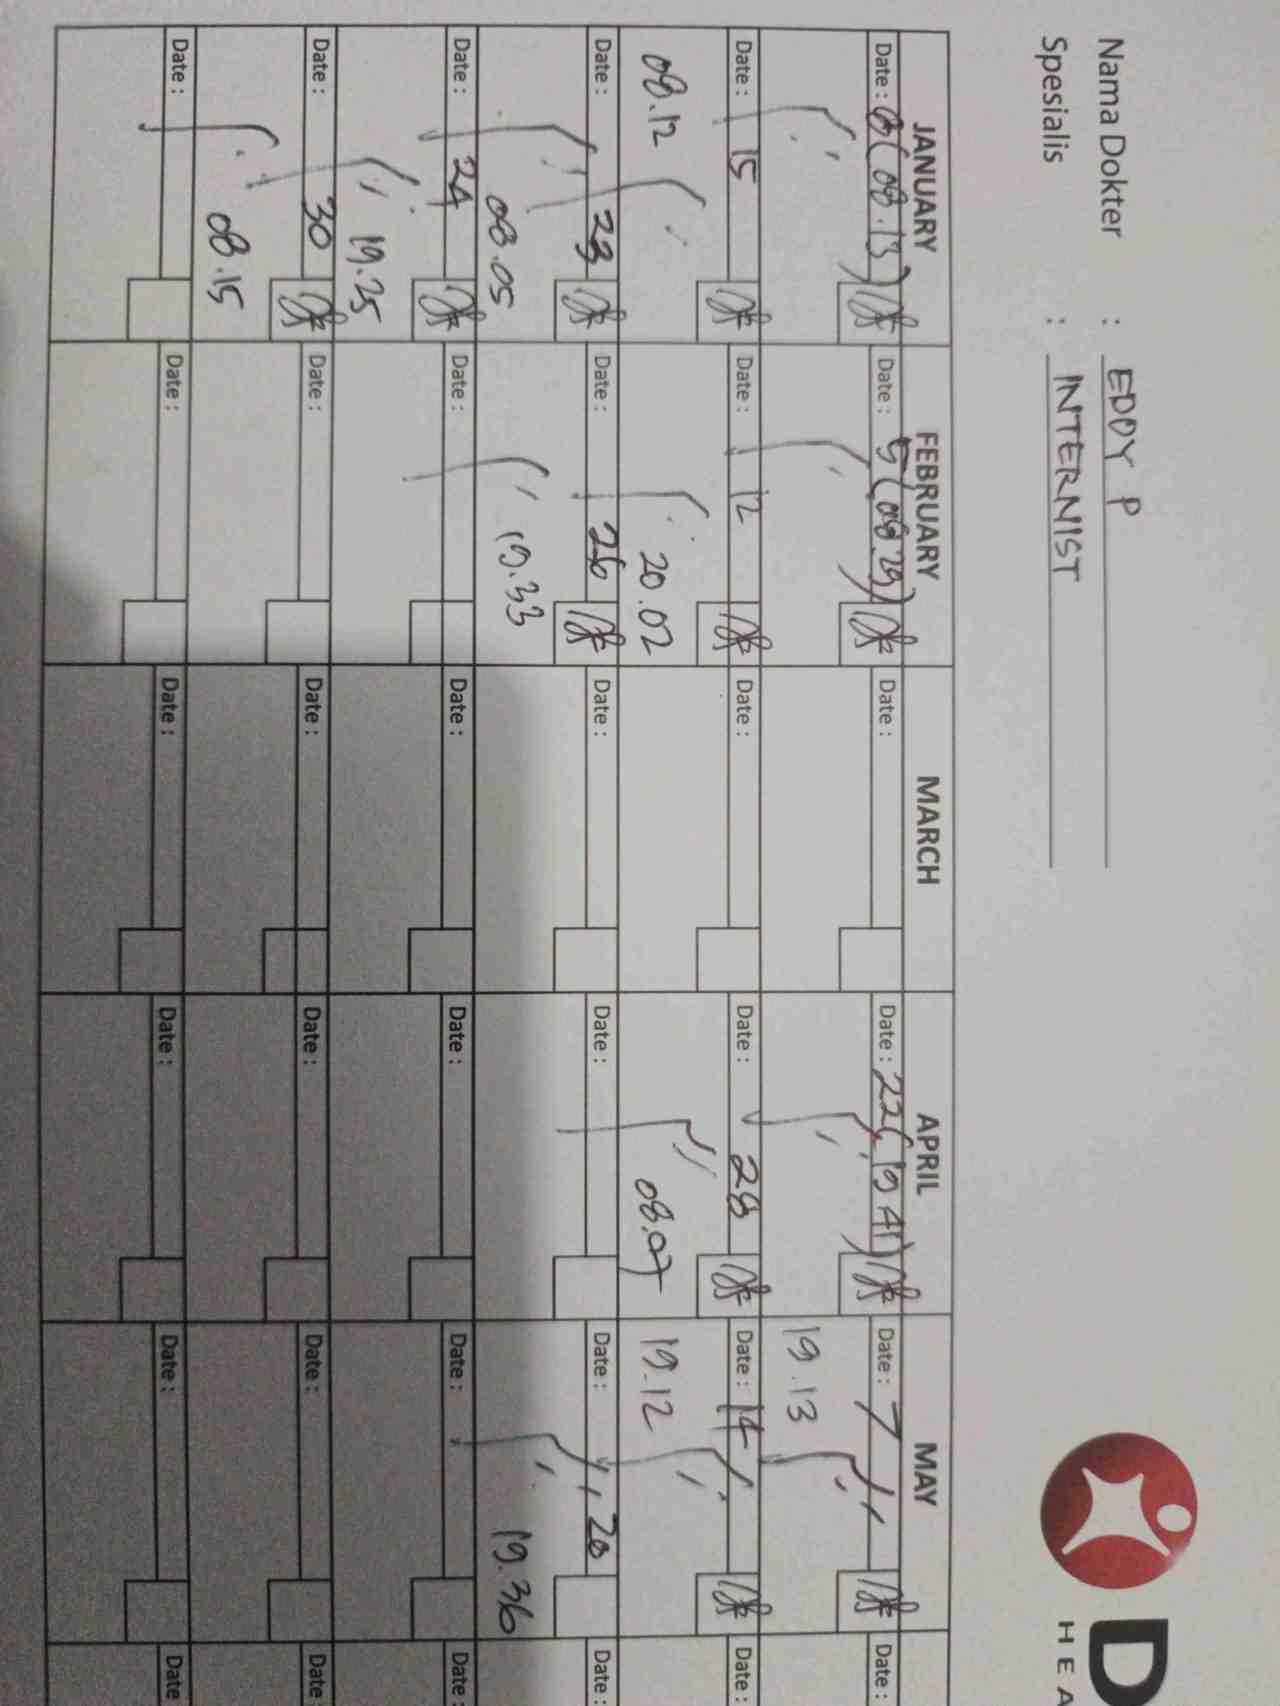 Nama Dokter : EDDY P
Spesialis : INTERNIST
D
HEA
JANUARY FEBRUARY MARCH APRIL MAY
Date : 6 (08.13) Date : 5 (08.29) Date : Date : 22 (19.41) Date : 7 Date :
19.13
Date : 15 Date : 12 Date : Date : 28 Date : 14 Date :
08.12 20.02 08.07 19.12
Date : 23 Date : 26 Date : Date : Date : 20 Date :
08.05 19.33 19.36
Date : 24 Date : Date : Date : Date : Date :
19.25
Date : 30 Date : Date : Date : Date : Date :
08.15
Date : Date : Date : Date : Date : Date